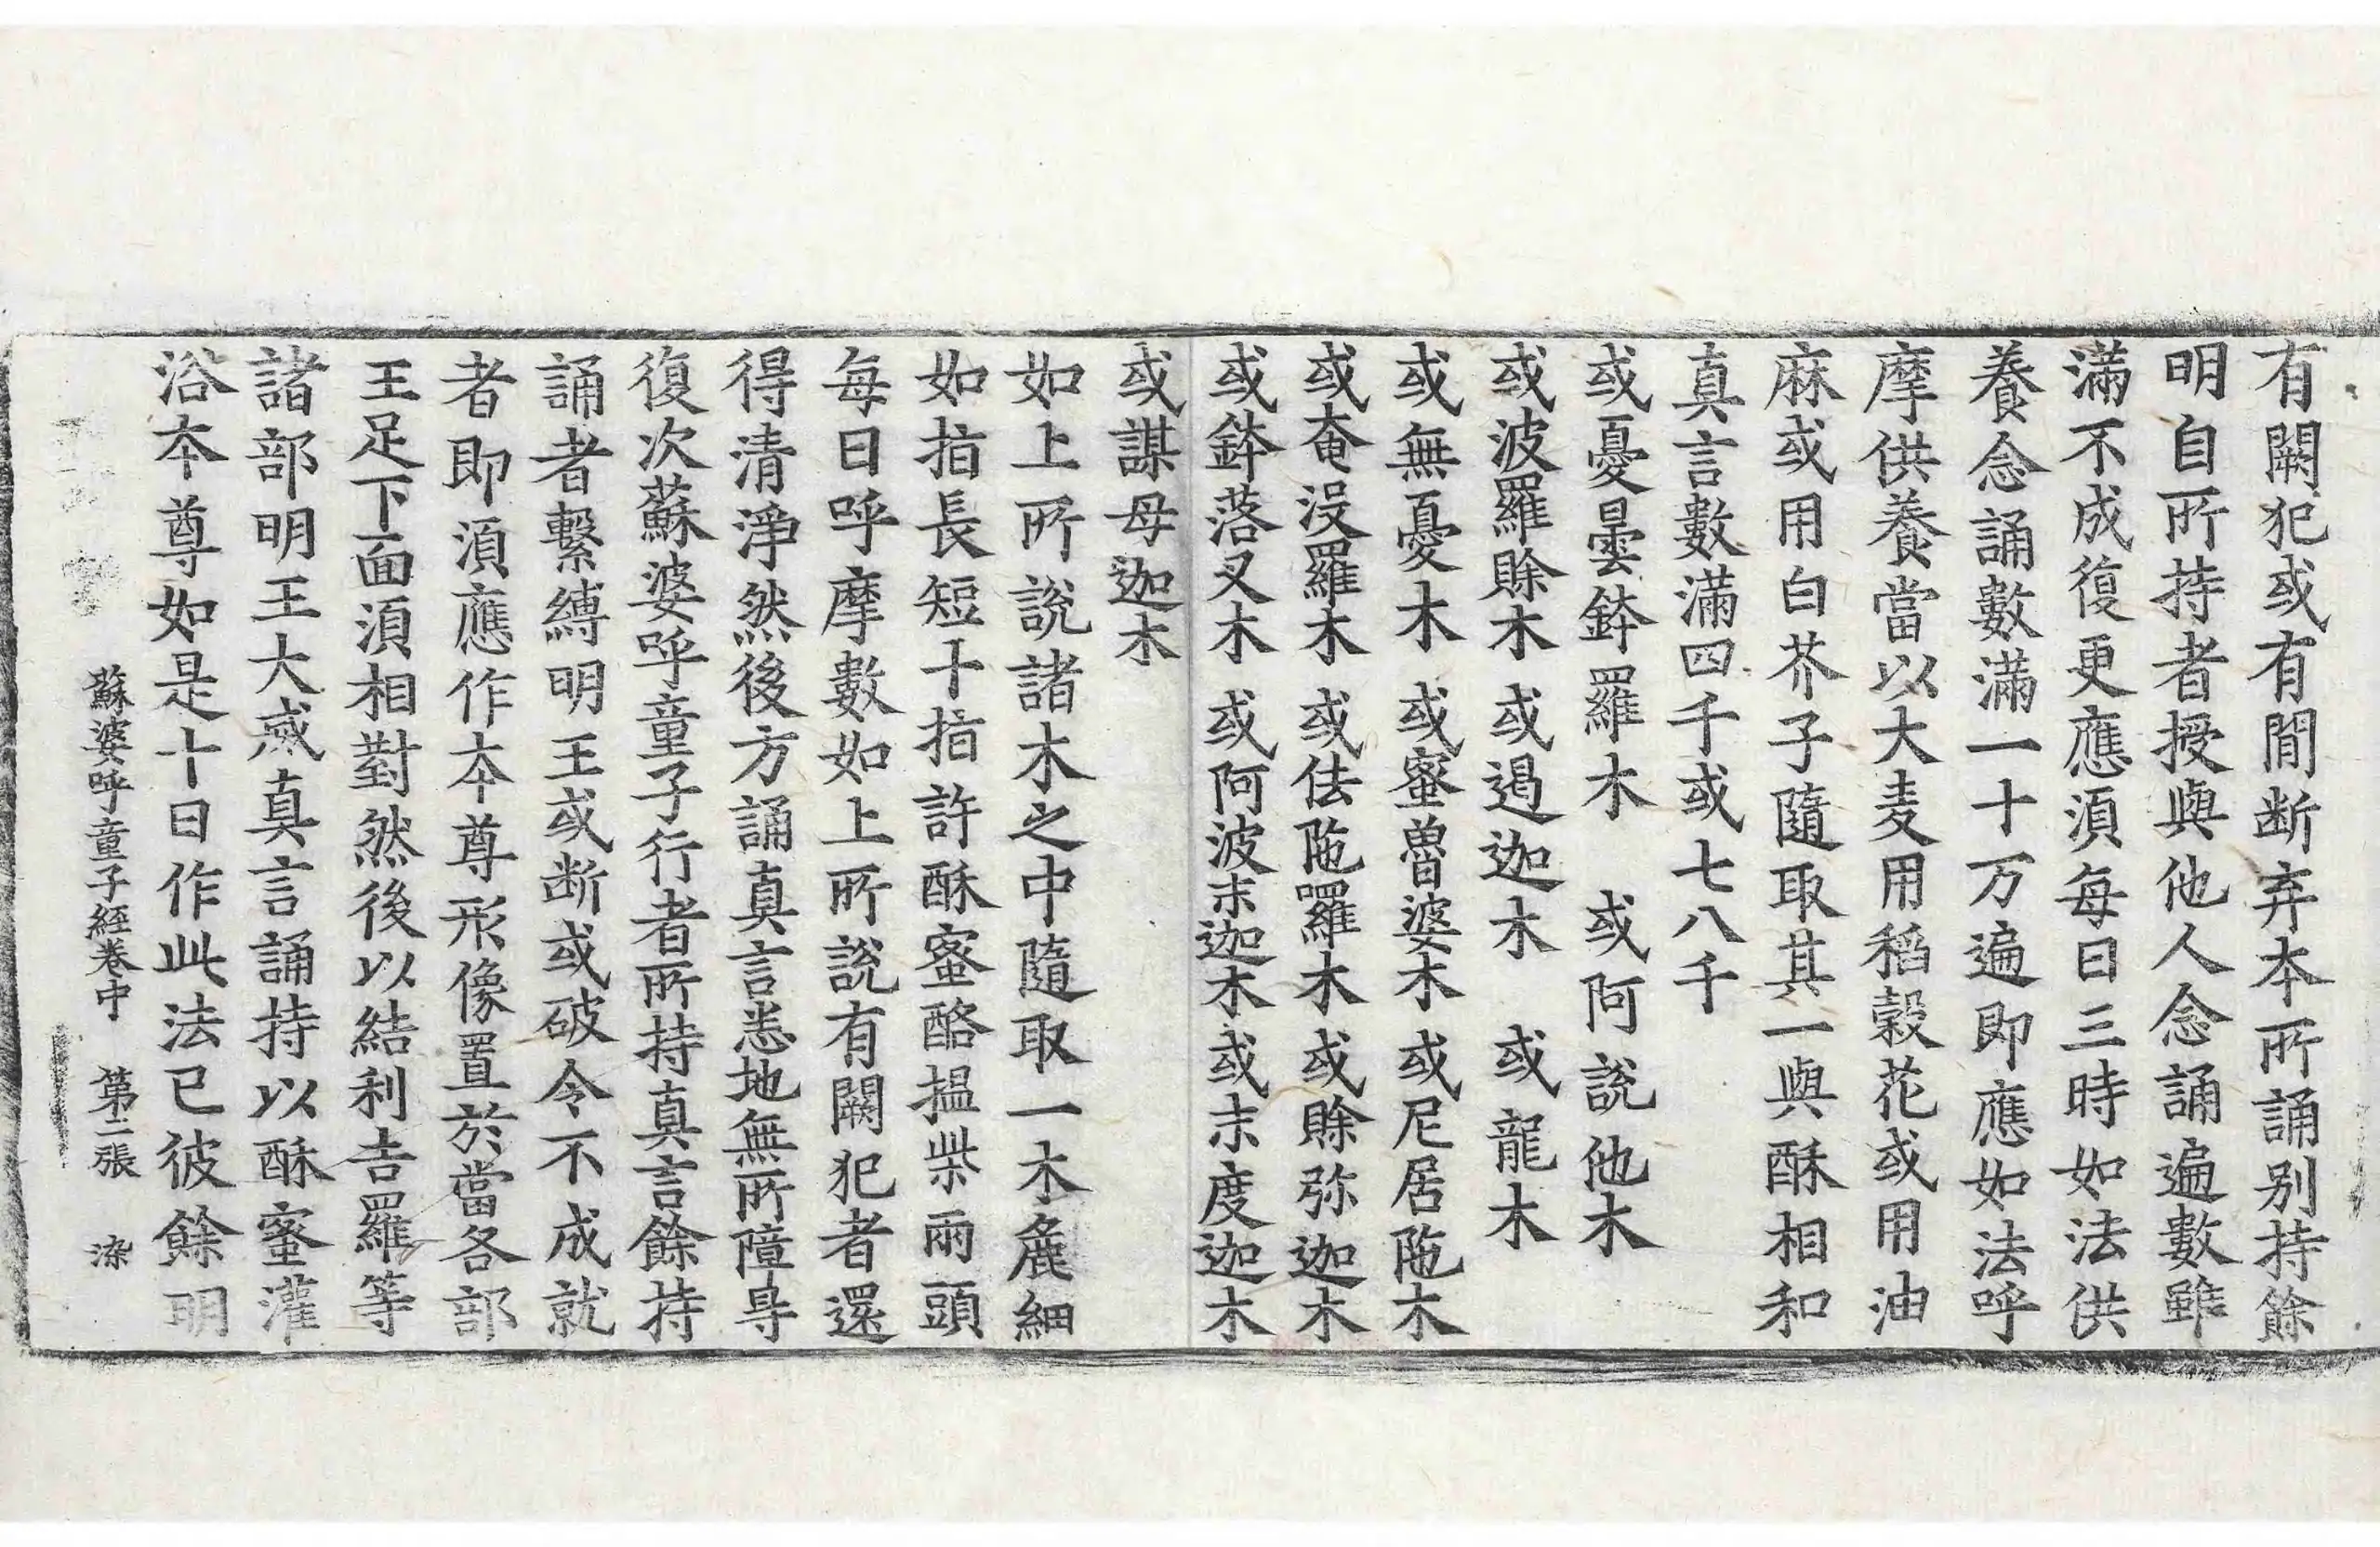 有闕犯或有閒断弃夲所誦別持餘
明自所持者授與他人念誦遍數雖
滿不成復更應湏每日三時如法供
養念誦數滿一十万遍即應如法呼
摩供養當以大麦用稻糓花或用油
麻或用白芥子隨取其一與酥相和
真言數滿四千或七八千
或憂曇鉢羅木 或阿說他木
或波羅賒木 或遏迦木 或龍木
或無憂木 或蜜嚕婆木 或尼居陁木
或奄沒羅木 或佉陁囉木 或賒弥迦木
或鉢落叉木 或阿波末迦木 或末度迦木
或謀母迦木
如上所說諸木之中隨取一木麁細
如指長短十指許酥蜜酪搵柴兩頭
每日呼摩數如上所說有闕犯者還
得清淨然後方誦真言悉地無所障㝵
復次蘇婆呼童子行者所持真言餘持
誦者繫縛明王或断或破令不成就
者即湏應作夲尊形像置於當各部
王足下面湏相對然後以結利吉羅等
諸部明王大威真言誦持以酥蜜灌
浴夲尊如是十日作此法已彼餘明
蘇婆呼童子經卷中 第二張 染